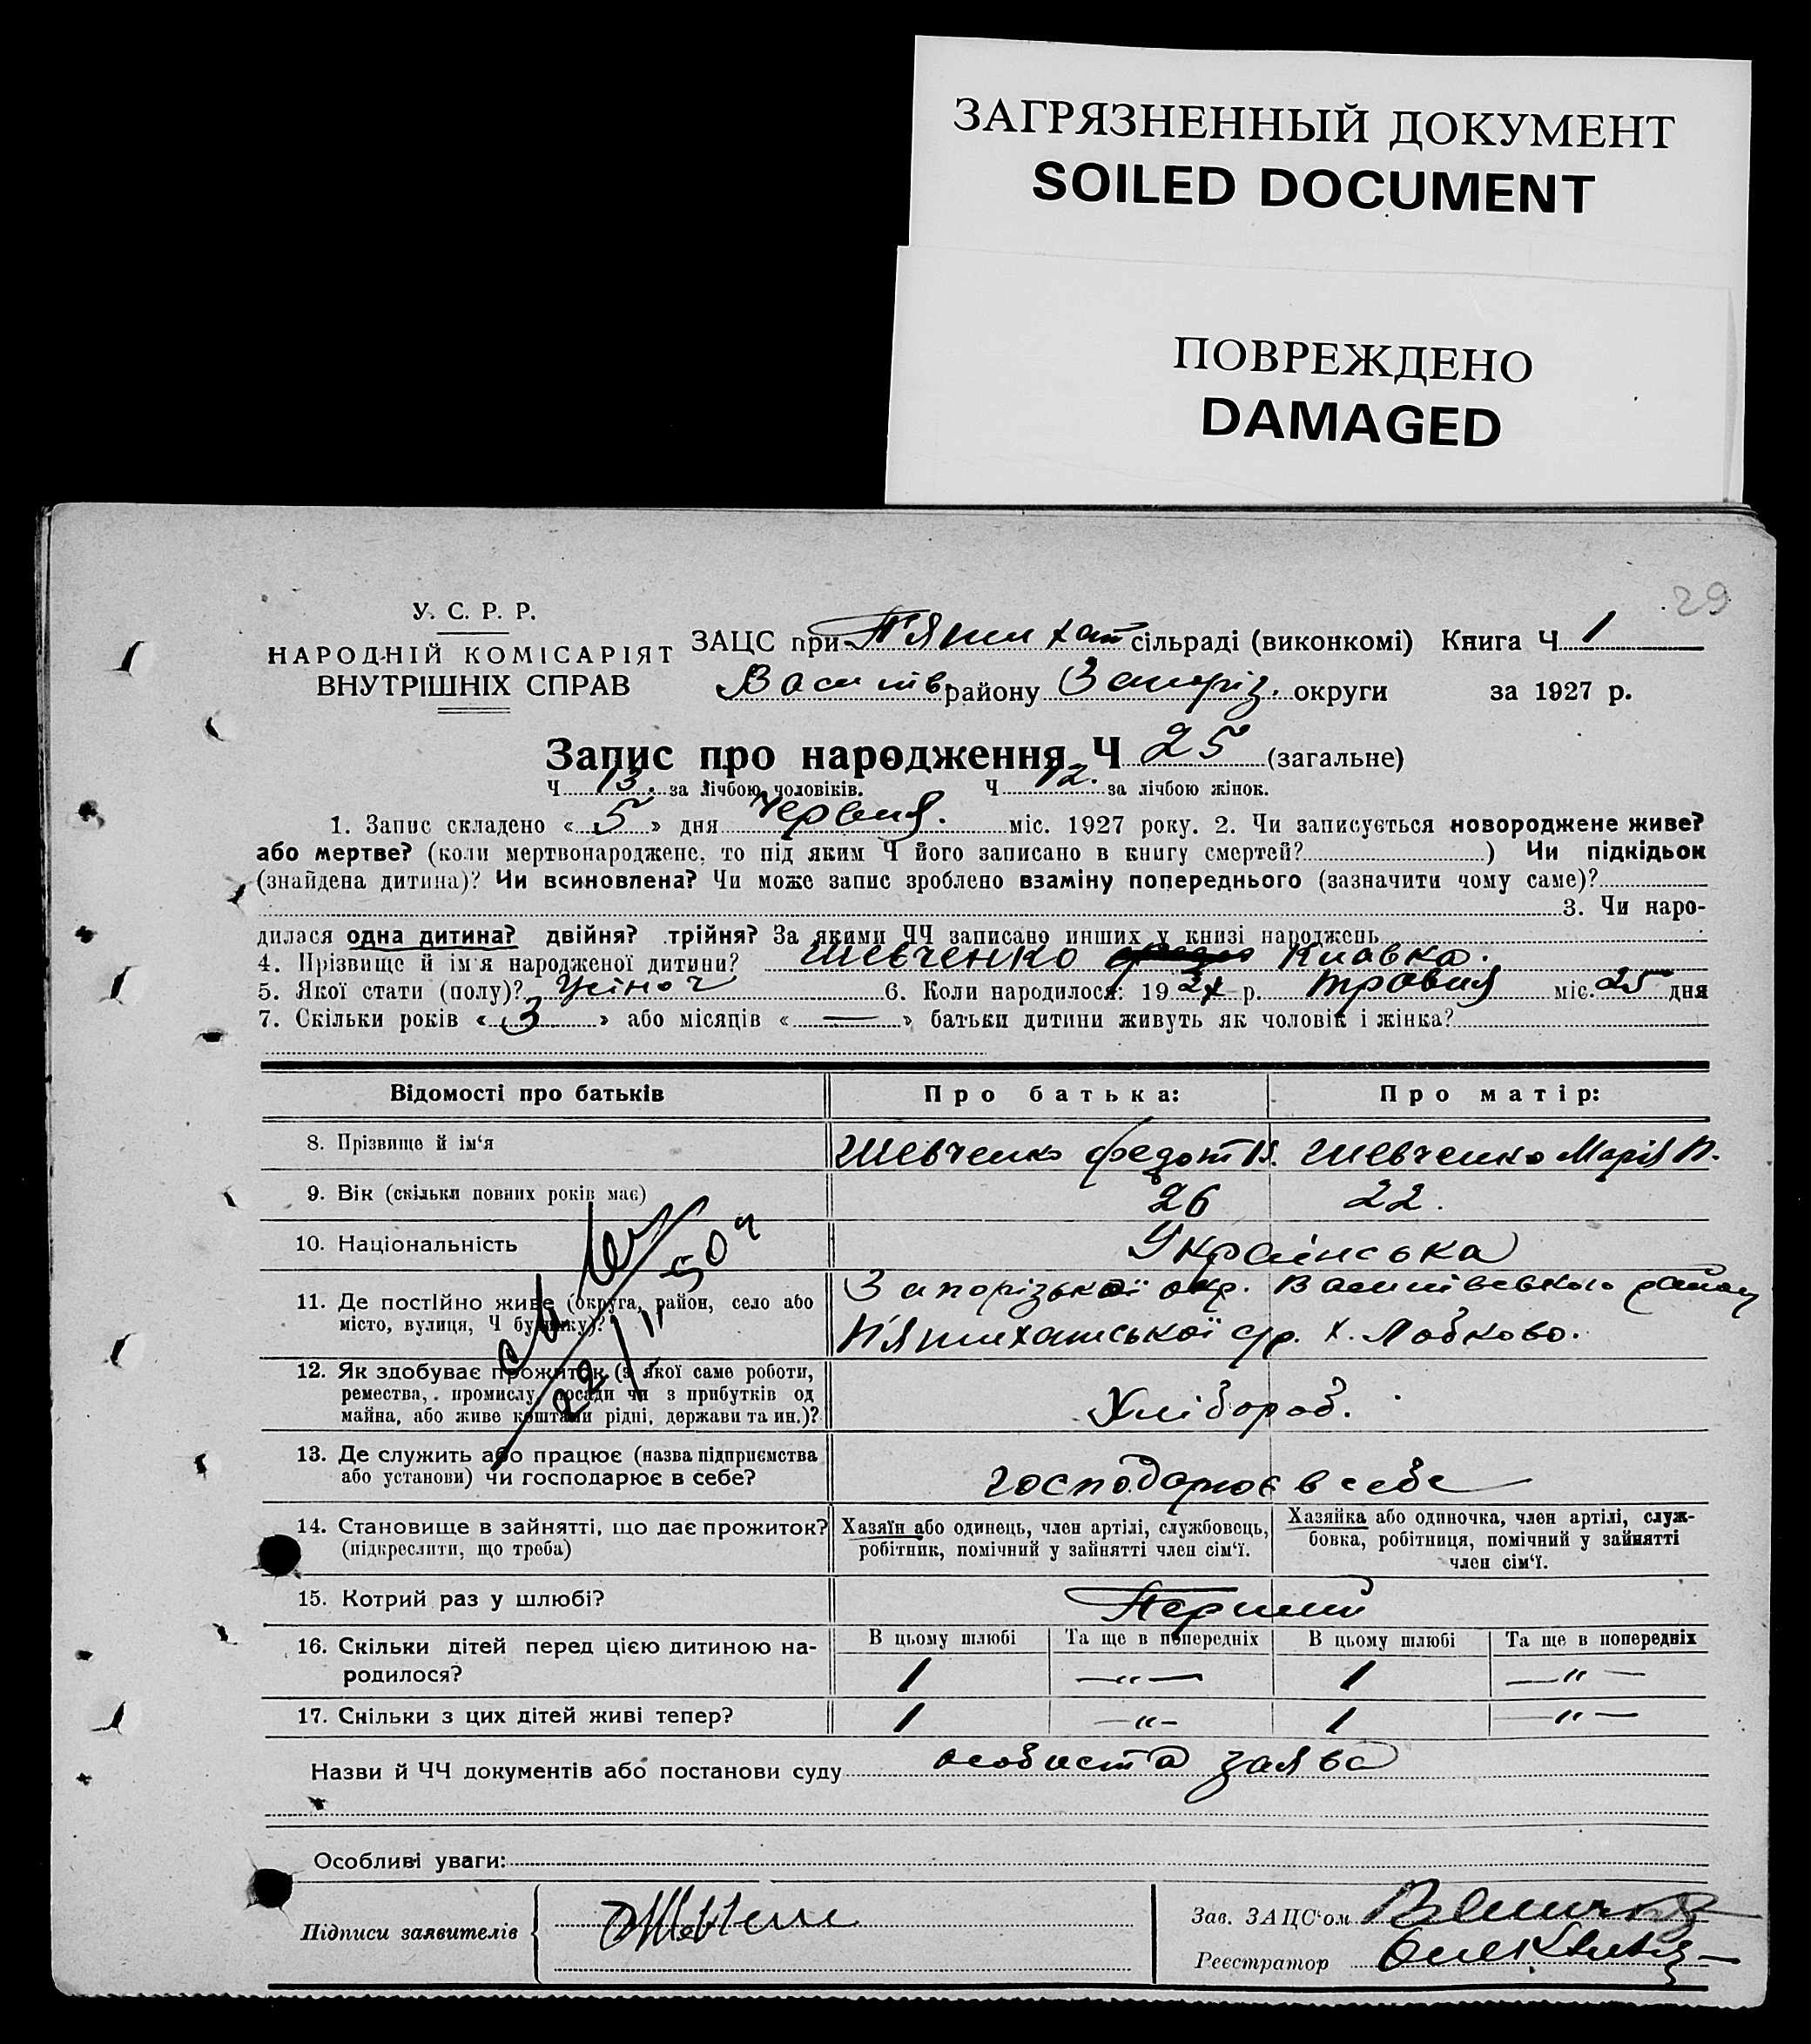 ЗАГРЯЗНЕННЫЙ ДОКУМЕНТ
SOILED DOCUMENT
ПОВРЕЖДЕНО
DAMAGED
29
У. С. Р. Р.
НАРОДНІЙ КОМІСАРІЯТ
ВНУТРІШНІХ СПРАВ
ЗАЦС при П'ятихат сільраді (виконкомі) Книга Ч 1
Васитів району Запоріз. округи за 1927 р.
Запис про народження Ч 25 (загальне)
Ч 13. за лічбою чоловіків. Ч 12. за лічбою жінок.
1. Запис складено « 5 » дня Червня. міс. 1927 року. 2. Чи записується новороджене живе?
або мертве? (коли мертвонароджене, то під яким Ч його записано в книгу смертей? ) Чи підкідьок
(знайдена дитина)? Чи всиновлена? Чи може запис зроблено взаміну попереднього (зазначити чому саме)?
3. Чи наро-
дилася одна дитина? двійня? трійня? За якими ЧЧ записано инших у книзі народжень
4. Прізвище й ім'я народженої дитини? Шевченко Клавка.
5. Якої стати (полу)? жіноч 6. Коли народилося: 19 27 р. травня міс. 25 дня
7. Скільки років « 3 » або місяців « — » батьки дитини живуть як чоловік і жінка?
Відомості про батьків Про батька: Про матір:
8. Прізвище й ім'я Шевченко Федот К. Шевченко Марія П.
9. Вік (скільки повних років має) 26 22.
10. Національність Українська
11. Де постійно живе (округа, район, село або Запорізької окр. Васитівського району
місто, вулиця, Ч будинку)? П'ятихатської с/р. х. Лобково.
12. Як здобуває прожиток (з якої саме роботи,
ремества, промислу, посади чи з прибутків од
майна, або живе коштами рідні, держави та ин.)? Хлібороб.
13. Де служить або працює (назва підприємства
або установи) чи господарює в себе? господарює в себе
14. Становище в зайнятті, що дає прожиток? Хазяїн або одинець, член артілі, службовець, Хазяйка або одиночка, член артілі, служ-
(підкреслити, що треба) робітник, помічний у зайнятті член сім'ї. бовка, робітниця, помічний у зайнятті
член сім'ї.
15. Котрий раз у шлюбі? Перший
16. Скільки дітей перед цією дитиною на- В цьому шлюбі Та ще в попередніх В цьому шлюбі Та ще в попередніх
родилося? 1 —"— 1 —"—
17. Скільки з цих дітей живі тепер? 1 —"— 1 —"—
Назви й ЧЧ документів або постанови суду особиста заява
Особливі уваги:
Підписи заявителів
Зав. ЗАЦС'ом
Реєстратор